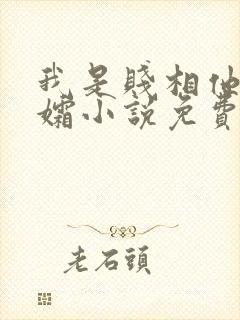 我是賤相他
孀小說免費
老石頭